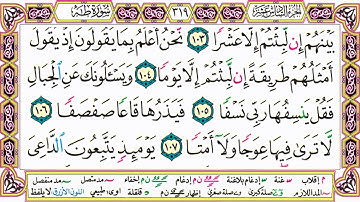 الجزء السادس عشر ٣١٩ سورة طه
بَيْنَهُمْ إِن لَّبِثْتُمْ إِلَّا عَشْرًا ١٠٣ نَّحْنُ أَعْلَمُ بِمَا يَقُولُونَ إِذْ يَقُولُ
أَمْثَلُهُمْ طَرِيقَةً إِن لَّبِثْتُمْ إِلَّا يَوْمًا ١٠٤ وَيَسْـَٔلُونَكَ عَنِ الْجِبَالِ
فَقُلْ يَنسِفُهَا رَبِّي نَسْفًا ١٠٥ فَيَذَرُهَا قَاعًا صَفْصَفًا ١٠٦
لَّا تَرَىٰ فِيهَا عِوَجًا وَلَا أَمْتًا ١٠٧ يَوْمَئِذٍ يَتَّبِعُونَ الدَّاعِيَ